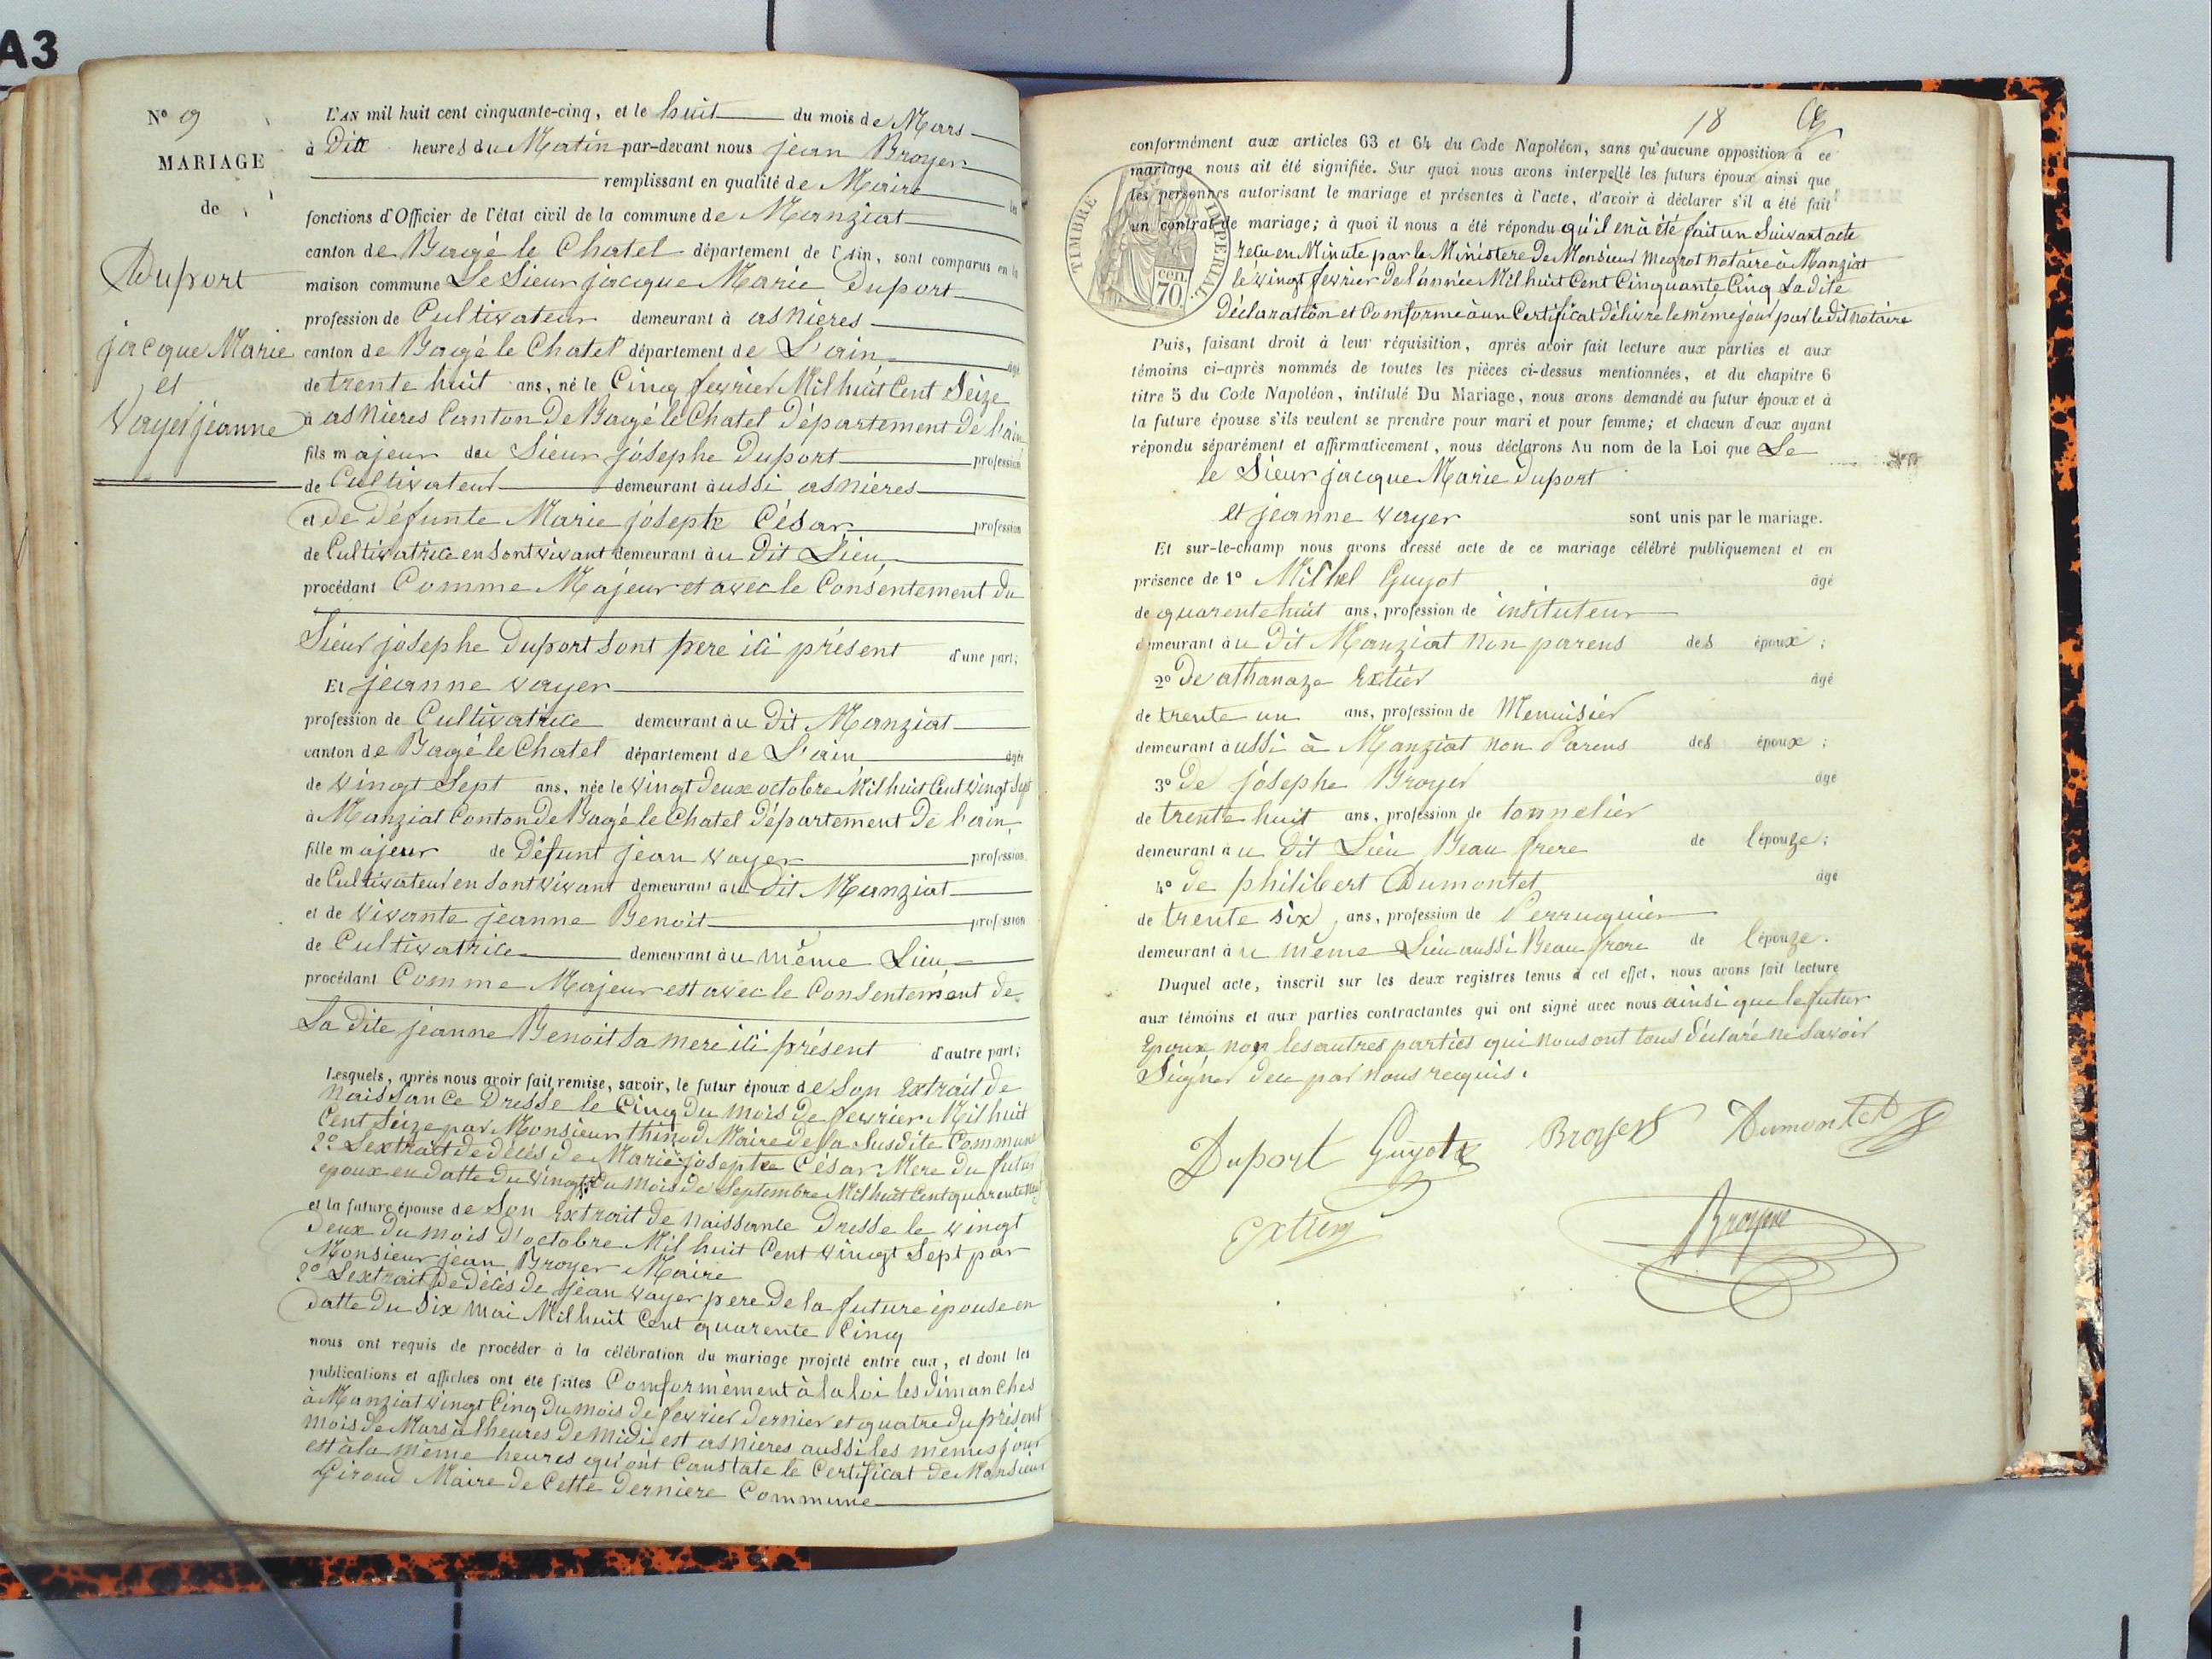 A3
N° 9
MARIAGE
de
Duport
jacque Marie
et
Vayer jeanne
L'AN mil huit cent cinquante-cinq, et le huit du mois de Mars
à Ditt heures du Matin par-devant nous jean Broyer
remplissant en qualité de Maire les
fonctions d'Officier de l'état civil de la commune de Manziat
canton de Bagé le Chatel département de l'Ain, sont comparus en la
maison commune Le Sieur jacque Marie Duport
profession de Cultivateur demeurant à asnieres
canton de Bagé le Chatel département de L'ain âgé
de trente huit ans, né le Cinq fevrier Mil huit Cent Seize
à asnieres Canton De Bagé le Chatel Département de l'ain
fils majeur du Sieur josephe Duport profession
de Cultivateur demeurant àussi asnieres
et de Défunte Marie josepte César profession
de Cultivatrice en sont vivant demeurant àu dit Lieu
procédant Comme Majeur et avec le Consentement du
Sieur josephe Duport sont pere ici présent d'une part;
Et jeanne vayer
profession de Cultivatrice demeurant àu Dit Manziat
canton de Bagé le Chatel département de L'ain âgée
de vingt Sept ans, née le vingt Deux octobre Mil huit Cent vingt Sept
à Manziat Conton De Bagé le Chatel Département De l'ain
fille majeur de Défunt jean vayer profession
de Cultivateur en sont vivant demeurant àu Dit Manziat
et de vivante jeanne Benoit profession
de Cultivatrice demeurant àu même Lieu
procédant Comme Majeur est avec le Consentement de
La dite jeanne Benoit Sa mere ici présent d'autre part;
Lesquels, après nous avoir fait remise, savoir, le futur époux de Son Extrait de
Naissance Dresse le Cinq Du mois de fevrier Mil huit
Cent Seize par Monsieur Maire de la Susdite Commune
2° L'extrait de décés de Marie josepte César Mere Du futur
époux en datte Du vingt Du Mois de Septembre Mil huit Cent quarente neuf
et la future épouse de Son Extrait de Naissance Dresse le vingt
Deux du mois d'octobre Mil huit Cent vingt Sept par
Monsieur jean Broyer Maire
2° L'extrait De décés de jean vayer pere De la future épouse en
datte Du Six Mai Mil huit Cent quarente Cinq
nous ont requis de procéder à la célébration du mariage projeté entre eux, et dont les
publications et affiches ont été faites Comformement à la loi les dimanches
à Manziat vingt Cinq Du mois de fevrier Dernier et quatre du présent
mois de Mars à l'heures De Midi est asnieres aussi les mêmes jour
est à la même heures qu'ont Constate le Certificat de Monsieur
Giroud Maire De Cette Derniere Commune
18
TIMBRE IMPÉRIAL
cen.
70
conformément aux articles 63 et 64 du Code Napoléon, sans qu'aucune opposition à ce
mariage nous ait été signifiée. Sur quoi nous avons interpellé les futurs époux ainsi que
les personnes autorisant le mariage et présentes à l'acte, d'avoir à déclarer s'il a été fait
un contrat de mariage; à quoi il nous a été répondu qu'il en à été fait un Suivant acte
reçu en Minute par le Ministere De Monsieur Megrot Notaire à Manziat
le vingt fevrier De l'année Mil huit Cent Cinquante Cinq La dite
Déclaration et Comforme à un Certificat délivré le même jour par le dit notaire
Puis, faisant droit à leur réquisition, après avoir fait lecture aux parties et aux
témoins ci-après nommés de toutes les pièces ci-dessus mentionnées, et du chapitre 6
titre 5 du Code Napoléon, intitulé Du Mariage, nous avons demandé au futur époux et à
la future épouse s'ils veulent se prendre pour mari et pour femme; et chacun d'eux ayant
répondu séparément et affirmativement, nous déclarons Au nom de la Loi que Le
le Sieur jacque Marie Duport
et jeanne vayer sont unis par le mariage.
Et sur-le-champ nous avons dressé acte de ce mariage célébré publiquement et en
présence de 1° Milhel Guyot âgé
de quarente huit ans, profession de instituteur
demeurant àu dit Manziat non parens des époux;
2° De athanaze Extier âgé
de trente un ans, profession de Menuisier
demeurant àussi à Manziat non Parens des époux;
3° De josephe Broyer âgé
de trente huit ans, profession de tonnelier
demeurant àu dit Lieu Beau frere de l'épouze;
4° De philibert Dumontet âgé
de trente six, ans, profession de Perruquier
demeurant àu même Lieu aussi Beau frere de l'épouze.
Duquel acte, inscrit sur les deux registres tenus à cet effet, nous avons fait lecture
aux témoins et aux parties contractantes qui ont signé avec nous ainsi que le futur
Epoux non les autres parties qui nous ont tous déclaré ne Savoir
Signer de ce par Nous requis.
Duport Guyot Broyer Dumontet
Extier Broyer